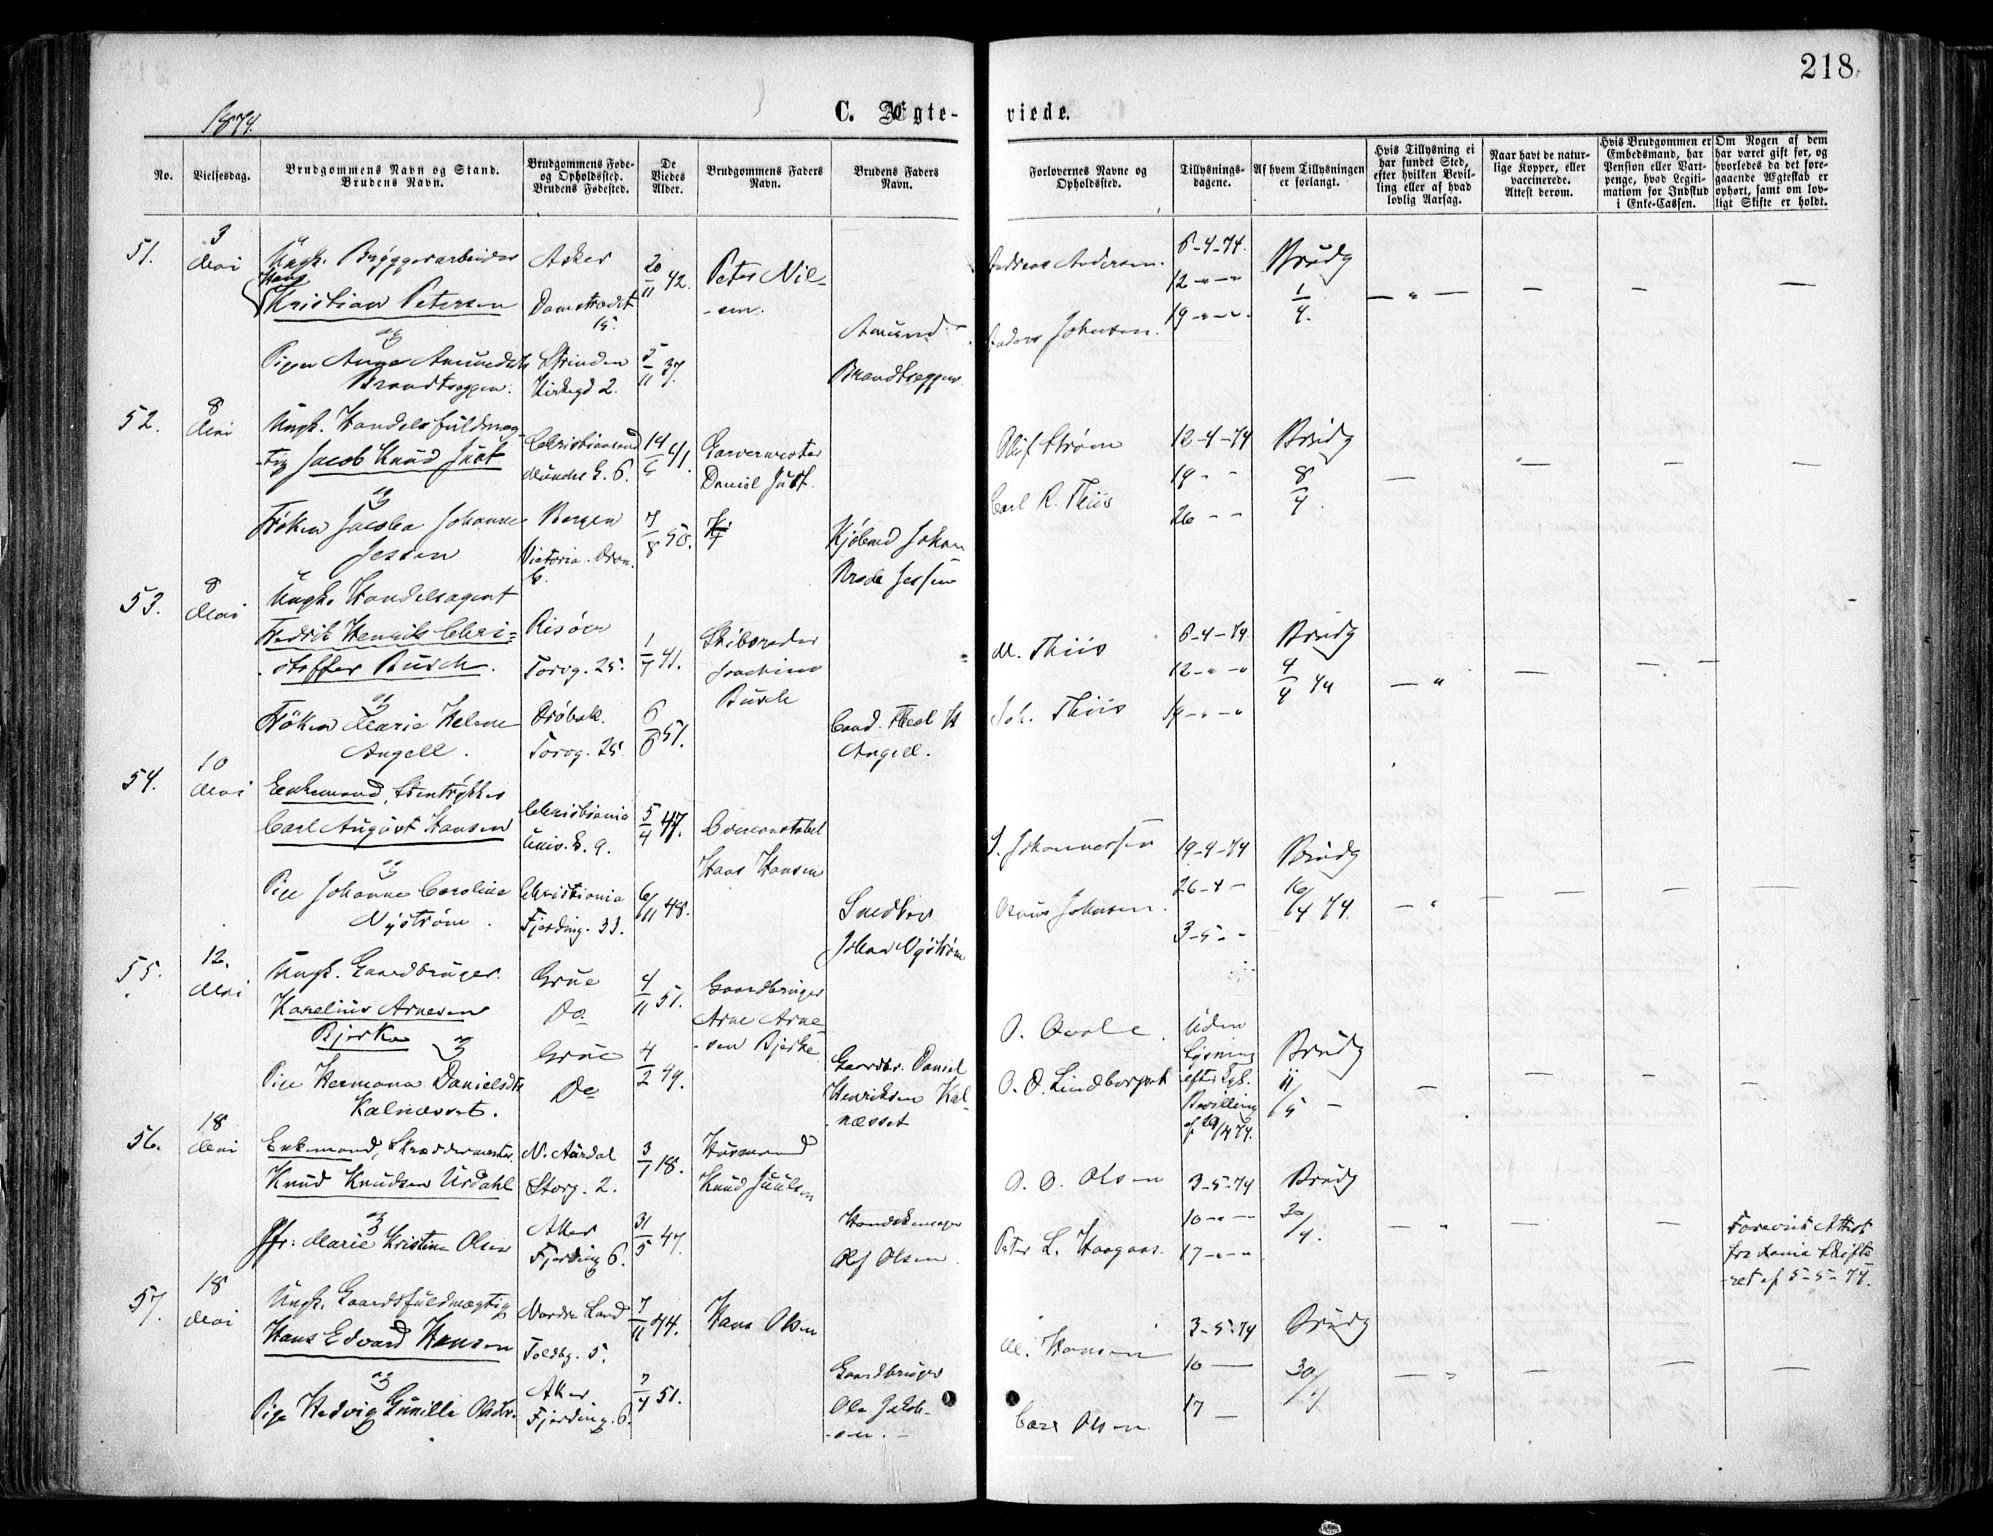 218.
1874.
C. Ægte-
viede.
No.
Vielsesdag.
Brudgommens Navn og Stand.
Brudens Navn.
Brudgommens Føde-
og Opholdssted.
Brudens Fødested.
De
Viedes
Alder.
Brudgommens Faders
Navn.
Brudens Faders
Navn.
Forlovernes Navne og
Opholdssted.
Tillysnings-
dagene.
Af hvem Tillysningen
er forlangt.
Hvis Tillysning ei
har fundet Sted,
efter hvilken Bevil-
ling eller af hvad
lovlig Aarsag.
Naar havt de natur-
lige Kopper, eller
vaccinerede.
Attest derom.
Hvis Brudgommen er
Embedsmand, har
Pension eller Vart-
penge, hvad Legiti-
mation for Indskud
i Enke-Cassen.
Om Nogen af dem
har været gift før, og
hvorledes da det fore-
gaaende Ægteskab er
ophørt, samt om lov-
ligt Skifte er holdt.
51.
3
Mai
Ungk. Bryggerarbeider
Hans
Kristian Petersen
og
Pigen Anne Amundsdtr
Brandtseggen.
Asker
Damstrædet
15.
Strinden
Kirkegd 2.
20/11 42.
5/11 37.
Peter Niel-
-sen.
Amund
Brandtseggen
Andreas Andersen.
Anders Johnsen.
6-4-74.
12 - " - "
19 - " - "
Brudg
1/4.
52.
8
Mai
Ungk. Handelsfuldmæg-
-tig Jacob Knud Just
og
Frøken Jacoba Johanne
Jessen
Christiansund
Munched. G. 6.
Bergen
Victoria
14/6 41.
7/8 50.
Garvermester
Daniel Just.
Kjøbmd Johan
Brode Jessen
Oluf Strøm
Carl R. Thiis
12-4-74
19 - -
26 - -
Brudg
8/4.
53.
8
Mai
Ungk. Handelsagent
Fredrik Henrik Chri-
-stoffer Busch.
og
Frøken Marie Helene
Angell.
Risøer
Torvg. 25.
Drøbak.
Torvg. 25
1/7 41.
6/6 51.
Skibsreder
Joachim
Busch
Cand. Theol H
Angell.
M. Thiis
Joh. Thiis
6-4-74.
12 - " - "
19 - " - "
Brudg
4/4 74
54.
10
Mai
Enkemand, Stentrykker
Carl August Hansen
og
Pige Johanne Caroline
Nystrøm.
Christiania
Univ. G. 9.
Christiania
Fjerding. 33.
5/4 47.
6/11 48.
Overconstabel
Hans Hansen
Snedker
Johan Nystrøm
S. Johannessen
Johnsen.
19-4-74
26-4 -
3-5- -
Brudg
16/4 74.
55.
12.
Mai
Ungk. Gaardbruger
Karelius Arnesen
Bjerke
og
Pige Hermana Danielsdtr
Kalnæsset.
Grue
Do
Grue
Do
4/11 51.
4/2 49.
Gaardbruger
Arne Arne-
-sen Bjerke
Gaardbr. Daniel
Henriksen Kal-
næsset
O. O. Lindborg
Uden
Lysning
efter Kgl.
Bevilling
Brudg
11/5 -
56.
18
Mai
Enkemand, Skræddermester
Knud Knudsen Urdahl
og
Jfr. Marie Kristine Olsen
N. Aurdal
Storg. 2.
Aker
Fjerding 6.
3/7 18.
31/5 47.
Husmand
Knud Juulsen
Handskemager
Olsen.
O. O. Olsen
Peter L. Haagaas.
3-5-74
10 - " -
17 - " - "
Brudg
30/4.
Forevist Attest
fra Xania Skifte
-ret af 5-5-74.
57.
18
Mai
Ungk. Gaardsfuldmægtig
Hans Edvard Hansen
og
Pige Hedvig Gunille Olsdtr.
Nordre Land
Toldbg. 5.
Aker
Fjerding. 6.
7/11 44.
7/4 51.
Hans Olsen
Gaardbruger
Ole Jakob-
-sen.
M. Hansen
Carl Olsen
3-5-74
10 -
17 -
Brudg
30/4